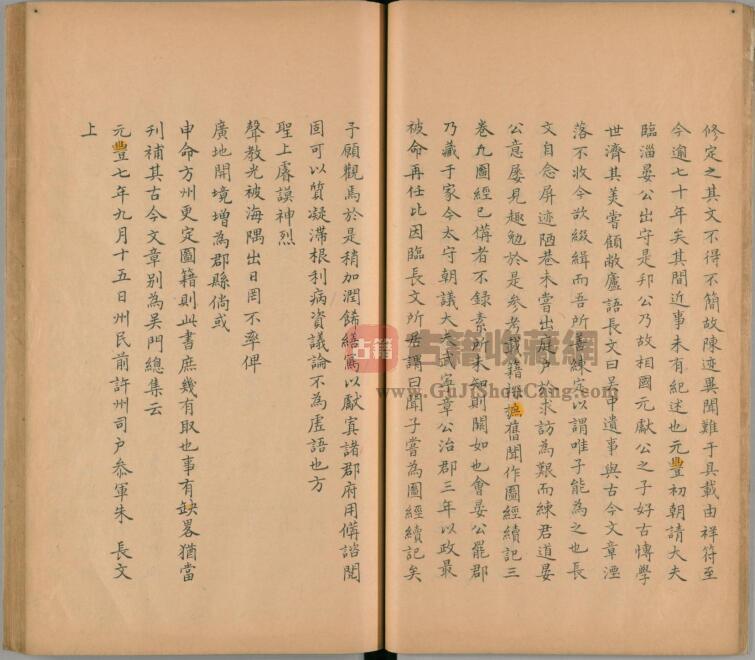 修定之其文不得不簡故陳迹異聞難于具載由祥符至
今逾七十年矣其間近事未有紀述也元豐初朝請大夫
臨淄晏公出守是邦公乃故相國元獻公之子好古愽學
世濟其美嘗顧敝廬語長文曰吴中遺事與古今文章湮
落不收今欲綴緝而吾所善練定以謂唯子能為之也長
文自念屏迹陋巷未嘗出庭戶於求訪為艱而練君道晏
公意屢見趣勉於是參考載籍探摭舊聞作圖經續記三
卷凡圖經已偹者不錄素所未知則闕如也會晏公罷郡
乃藏于家今太守朝議大夫武寜章公治郡三年以政最
被命再任比因臨長文所居謂曰聞子嘗為圖經續記矣
予願觀焉於是稍加潤餙繕寫以獻寘諸郡府用偹諮閱
固可以質凝滯根利病資議論不為虛語也方
聖上睿謨神烈
聲教光被海隅出日罔不率俾
廣地開境增為郡縣倘或
申命方州更定圖籍則此書庶幾有取也事有缺畧猶當
刊補其古今文章別為吳門總集云
元豐七年九月十五日州民前許州司户叅軍朱 長文
上
古籍收藏網
www.GuJiShoCang.com